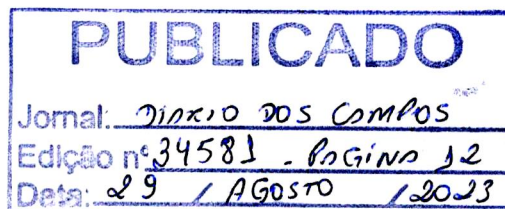 PUBLICADO
Jornal: DIARIO DOS CAMPOS
Edição nº 34581 - PAGINA 12
Data: 29 / AGOSTO / 2023